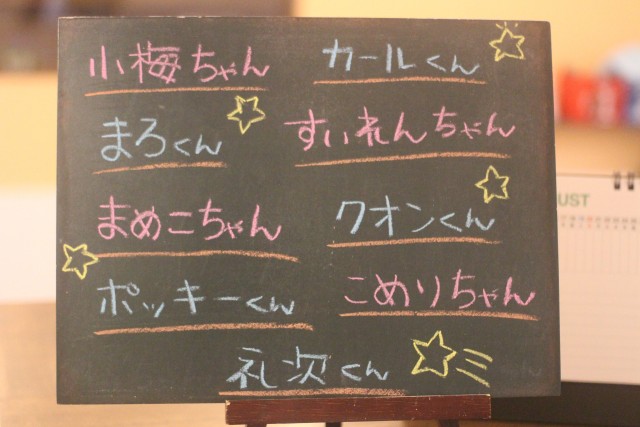 小梅ちゃん
カールくん
まろくん
すいれんちゃん
まめこちゃん
クオンくん
ポッキーくん
こめりちゃん
礼次くん
UST